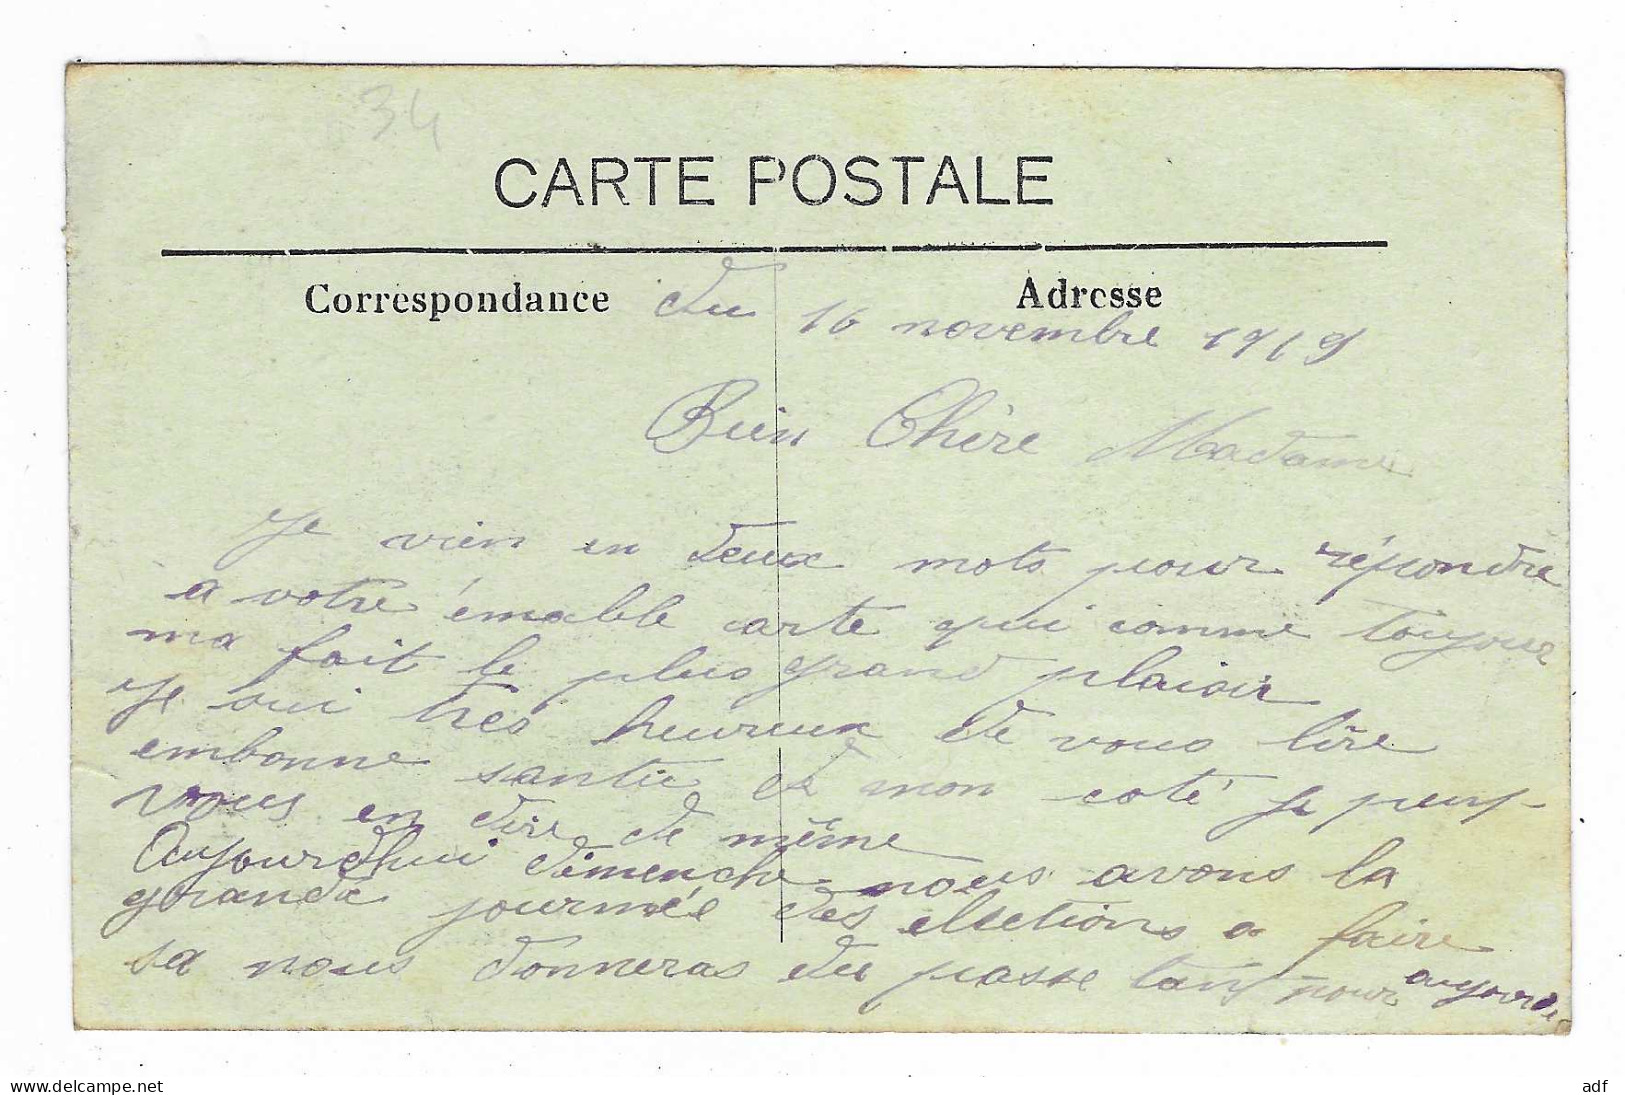 34
CARTE POSTALE
Correspondance
Adresse
du 16 novembre 1919
Bien Chère Madame
Je vien en deux mots pour répondre
a votre émable carte qui comme toujour
ma fait le plus grand plaisir
Je sui très heureux de vous lire
embonne santée de mon coté je peux
vous en dire de même
Aujourdhui dimenche nous avons la
grande journée des elections a faire
sa nous donneras du passe tans pour aujourd
delcampe.net
adf